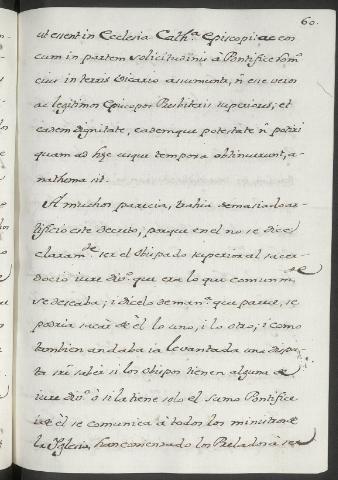 60.
ut essent in Ecclesia Cath.ª Episcopi: ac eos
cum in partem solicitudinis à Pontifice Rom.
eius in terris Vicario assumuntur, ñ esse veros
ac legitimos Episcopos Presbiteris superiores; et
eadem dignitate, eademque potestate ñ potiri
quam ad hęc usque tempora obtinuerunt, a-
nathema sit.
A muchos parecia, habia demasiado ar-
tificio este decreto, porque en el no se dice
claram.te ser el obispado superior al sacer-
docio iure div.º que era lo que comunm.te
se deseaba; i dicelo de man.ª que parece, se
podria sacar de èl lo uno, i lo otro; i como
tambien andaba ia levantada una dispu-
ta sre saber si los obispos tienen alguna de
iure div.º ò si la tiene solo el sumo Pontifice
i de èl se comunica à todos los ministros de
la Iglesia, han comenzado los Prelados à ser